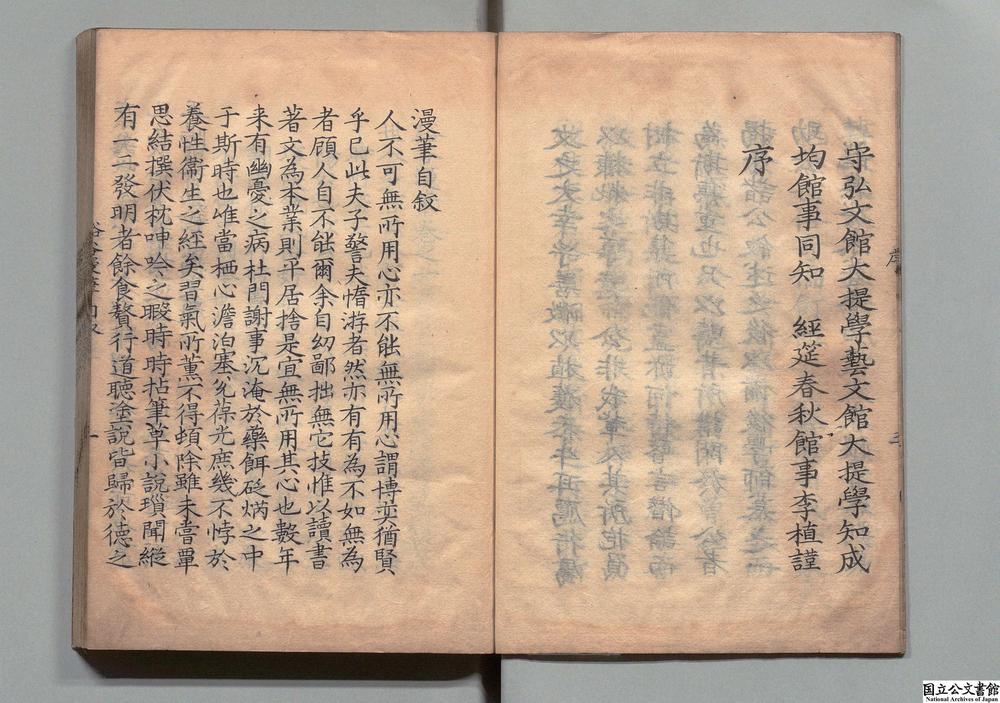 寺弘文館大提學藝文館大提學知成
均館事同知　經筵春秋館事李植謹
序
漫筆自叙
人不可無所用心亦不能無所用心謂博奕猶賢
乎已此夫子警夫惰游者然亦有有為不如無為
者顧人自不能爾余自幼鄙拙無它技惟以讀書
著文為本業則平居捨是宜無所用其心也數年
来有幽憂之病杜門謝事沉淹於藥餌砭焫之中
于斯時也唯當栖心澹泊塞兊葆光庶幾不悖於
養性衞生之經矣習氣所薰不得頓除雖未嘗覃
思結撰伏枕呻吟之暇時時拈筆草小說瑣聞縱
有一二發明者餘食贅行道聽塗說皆歸於德之
国立公文書館
National Archives of Japan